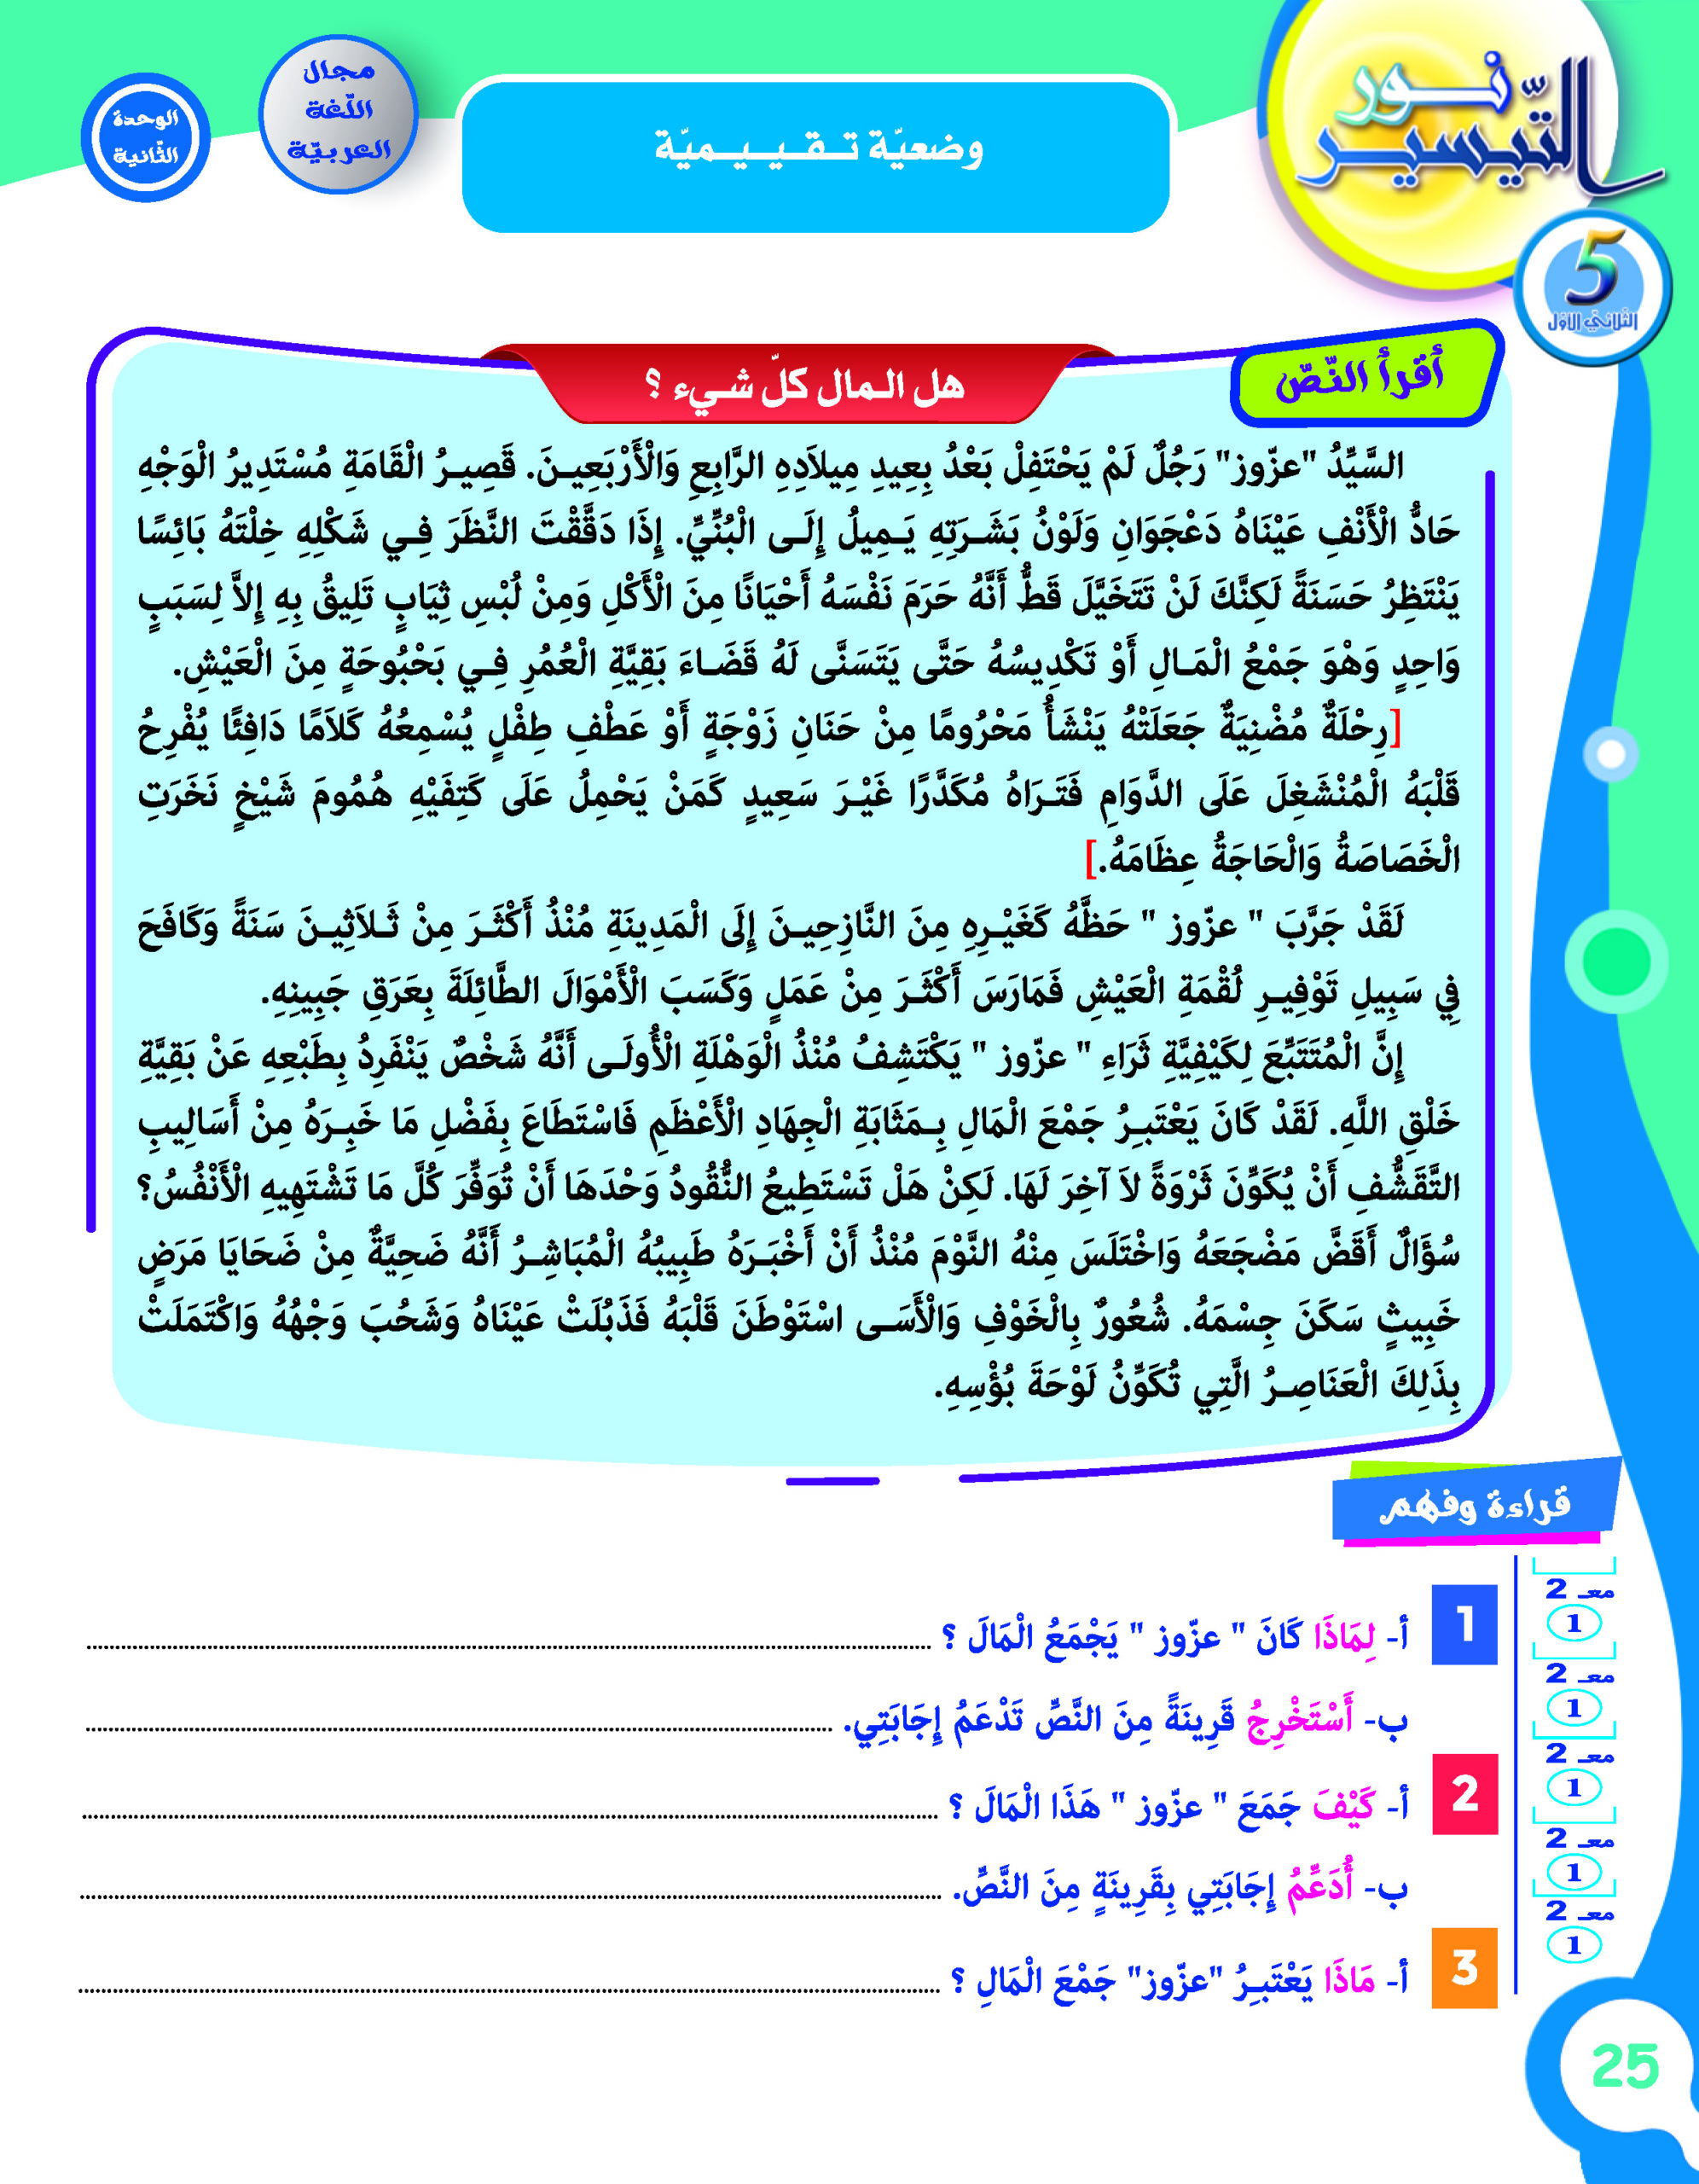 نور
التّيسير
5
الثلاثي الأوّل
وضعيّة تـقـيـيـميّة
مجال
اللّغة
العربيّة
الوحدة
الثّانية
أقرأ النّصّ
هل الـمال كلّ شـيء ؟
السَّيِّدُ "عزّوز" رَجُلٌ لَمْ يَحْتَفِلْ بَعْدُ بِعِيدِ مِيلاَدِهِ الرَّابِعِ وَالْأَرْبَعِيـنَ. قَصِيـرُ الْقَامَةِ مُسْتَدِيرُ الْوَجْهِ
حَادُّ الْأَنْفِ عَيْنَاهُ دَعْجَوَانِ وَلَوْنُ بَشَـرَتِهِ يَـمِيلُ إِلَـى الْبُنِّيِّ. إِذَا دَقَّقْتَ النَّظَرَ فِـي شَكْلِهِ خِلْتَهُ بَائِسًا
يَنْتَظِرُ حَسَنَةً لَكِنَّكَ لَنْ تَتَخَيَّلَ قَطُّ أَنَّهُ حَرَمَ نَفْسَهُ أَحْيَانًا مِنَ الْأَكْلِ وَمِنْ لُبْسِ ثِيَابٍ تَلِيقُ بِهِ إِلاَّ لِسَبَبٍ
وَاحِدٍ وَهْوَ جَمْعُ الْمَـالِ أَوْ تَكْدِيسُهُ حَتَّى يَتَسَنَّى لَهُ قَضَـاءَ بَقِيَّةِ الْعُمُرِ فِـي بَحْبُوحَةٍ مِنَ الْعَيْشِ.
[رِحْلَةٌ مُضْنِيَةٌ جَعَلَتْهُ يَنْشَأُ مَحْرُومًا مِنْ حَنَانِ زَوْجَةٍ أَوْ عَطْفِ طِفْلٍ يُسْمِعُهُ كَلاَمًا دَافِئًا يُفْرِحُ
قَلْبَهُ الْمُنْشَغِلَ عَلَى الدَّوَامِ فَتَـرَاهُ مُكَدَّرًا غَيْـرَ سَعِيدٍ كَمَنْ يَحْمِلُ عَلَى كَتِفَيْهِ هُمُومَ شَيْخٍ نَخَرَتِ
الْخَصَاصَةُ وَالْحَاجَةُ عِظَامَهُ.]
لَقَدْ جَرَّبَ " عزّوز " حَظَّهُ كَغَيْـرِهِ مِنَ النَّازِحِيـنَ إِلَى الْمَدِينَةِ مُنْذُ أَكْثَـرَ مِنْ ثَـلاَثِيـنَ سَنَةً وَكَافَحَ
فِي سَبِيلِ تَوْفِيـرِ لُقْمَةِ الْعَيْشِ فَمَارَسَ أَكْثَـرَ مِنْ عَمَلٍ وَكَسَبَ الْأَمْوَالَ الطَّائِلَةَ بِعَرَقِ جَبِينِهِ.
إِنَّ الْمُتَتَبِّعَ لِكَيْفِيَّةِ ثَرَاءِ " عزّوز " يَكْتَشِفُ مُنْذُ الْوَهْلَةِ الْأُولَـى أَنَّهُ شَخْصٌ يَنْفَرِدُ بِطَبْعِهِ عَنْ بَقِيَّةِ
خَلْقِ اللَّهِ. لَقَدْ كَانَ يَعْتَبِـرُ جَمْعَ الْمَالِ بِـمَثَابَةِ الْجِهَادِ الْأَعْظَمِ فَاسْتَطَاعَ بِفَضْلِ مَا خَبِـرَهُ مِنْ أَسَالِيبِ
التَّقَشُّفِ أَنْ يُكَوِّنَ ثَرْوَةً لاَ آخِرَ لَهَا. لَكِنْ هَلْ تَسْتَطِيعُ النُّقُودُ وَحْدَهَا أَنْ تُوَفِّرَ كُلَّ مَا تَشْتَهِيهِ الْأَنْفُسُ؟
سُؤَالٌ أَقَضَّ مَضْجَعَهُ وَاخْتَلَسَ مِنْهُ النَّوْمَ مُنْذُ أَنْ أَخْبَـرَهُ طَبِيبُهُ الْمُبَاشِـرُ أَنَّهُ ضَحِيَّةٌ مِنْ ضَحَايَا مَرَضٍ
خَبِيثٍ سَكَنَ جِسْمَهُ. شُعُورٌ بِالْخَوْفِ وَالْأَسَـى اسْتَوْطَنَ قَلْبَهُ فَذَبُلَتْ عَيْنَاهُ وَشَحُبَ وَجْهُهُ وَاكْتَمَلَتْ
بِذَلِكَ الْعَنَاصِـرُ الَّتِي تُكَوِّنُ لَوْحَةَ بُؤْسِهِ.
قراءة وفهم
معـ 2
1
1 أ- لِمَاذَا كَانَ " عزّوز " يَجْمَعُ الْمَالَ ؟
معـ 2
1
ب- أَسْتَخْرِجُ قَرِينَةً مِنَ النَّصِّ تَدْعَمُ إِجَابَتِي.
معـ 2
1
2 أ- كَيْفَ جَمَعَ " عزّوز " هَذَا الْمَالَ ؟
معـ 2
1
ب- أُدَعِّمُ إِجَابَتِي بِقَرِينَةٍ مِنَ النَّصِّ.
معـ 2
1
3 أ- مَاذَا يَعْتَبِـرُ "عزّوز" جَمْعَ الْمَالِ ؟
25